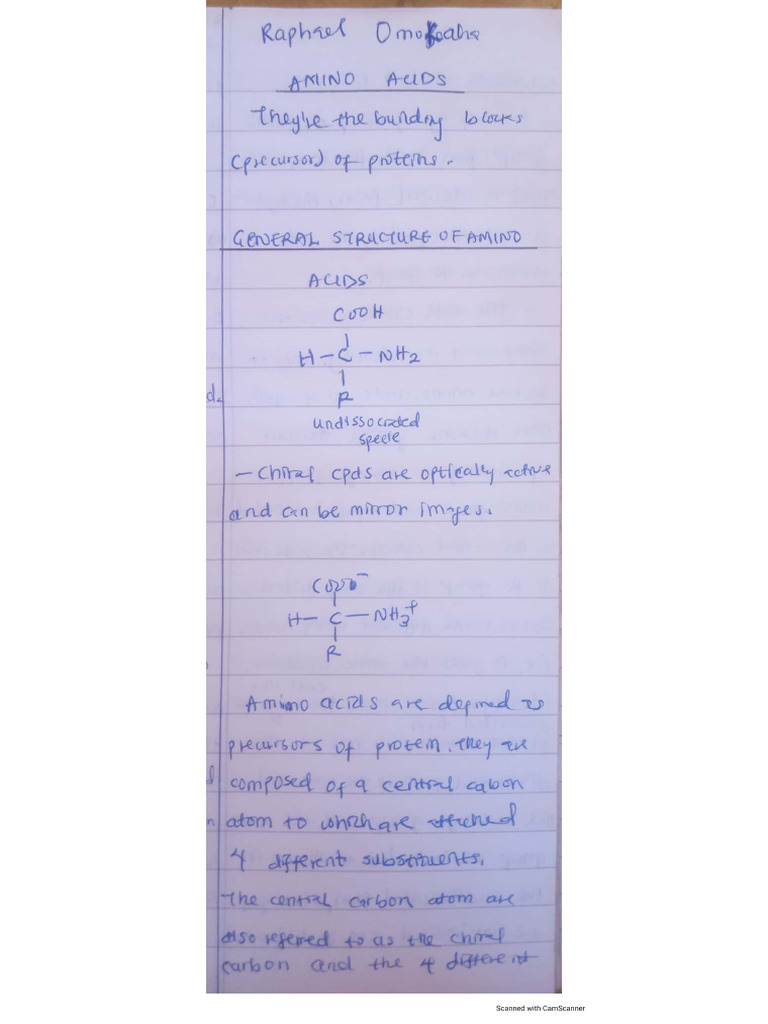 Raphael Omokoaha
AMINO ACIDS
They're the building blocks
(precursor) of proteins.
GENERAL STRUCTURE OF AMINO
ACIDS
COOH
H-C-NH2
R
undissociated
specie
- Chiral cpds are optically active
and can be mirror images.
COO-
H-C-NH3+
R
Amino acids are defined as
precursors of protein. They are
composed of a central cabon
atom to which are attached
4 different substituents.
The central carbon atom are
also referred to as the chiral
carbon and the 4 different
d.
d
n
Scanned with CamScanner